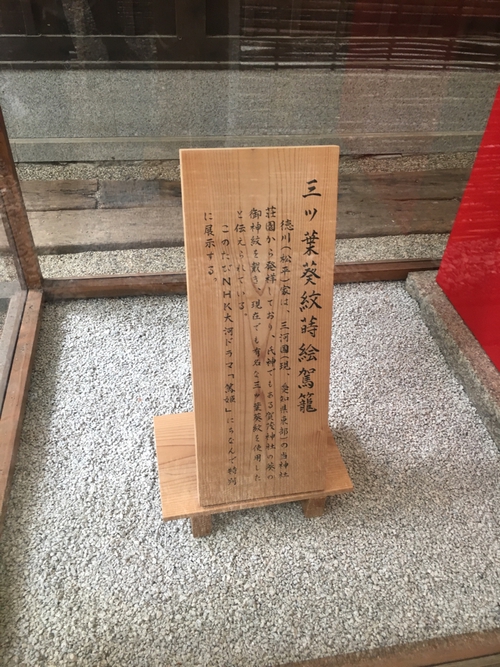 三ツ葉葵紋蒔絵駕籠
徳川(松平)家は、三河国(現、愛知県東部)の当神社
荘園から発祥しており、氏神でもある賀茂神社の葵の
御神紋を戴き、現在でも有名な三ツ葉葵紋を使用した
と伝えられている。
このたびNHK大河ドラマ「篤姫」にちなんで特別
に展示する。